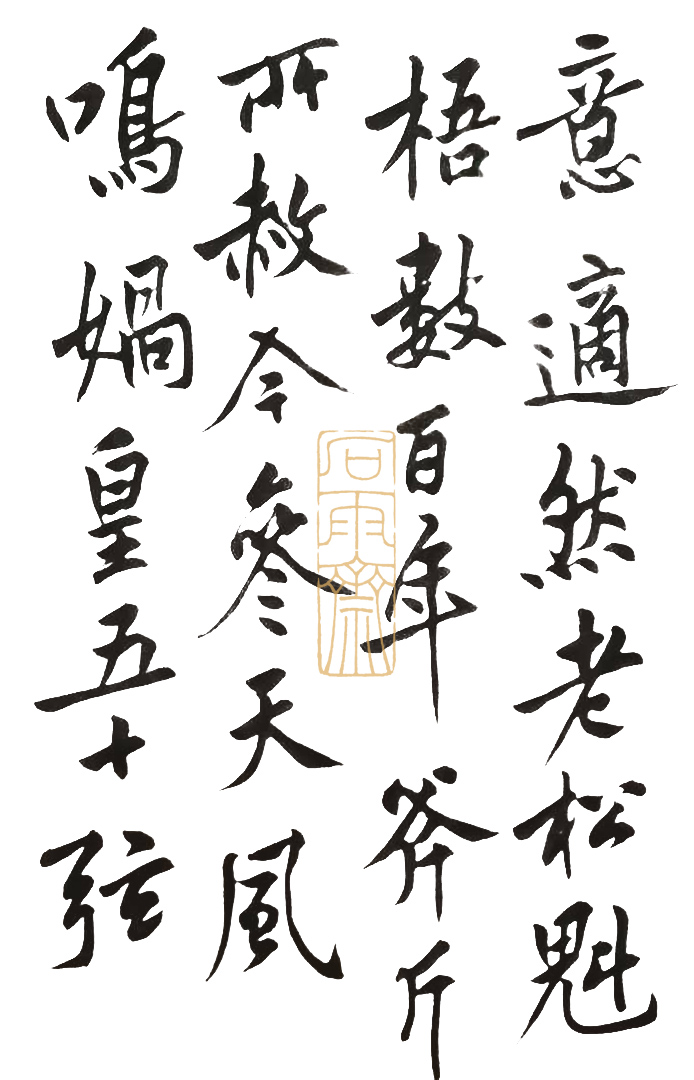 意適然老松魁
梧數百年斧斤
所赦今參天風
鳴媧皇五十弦
石雨齋